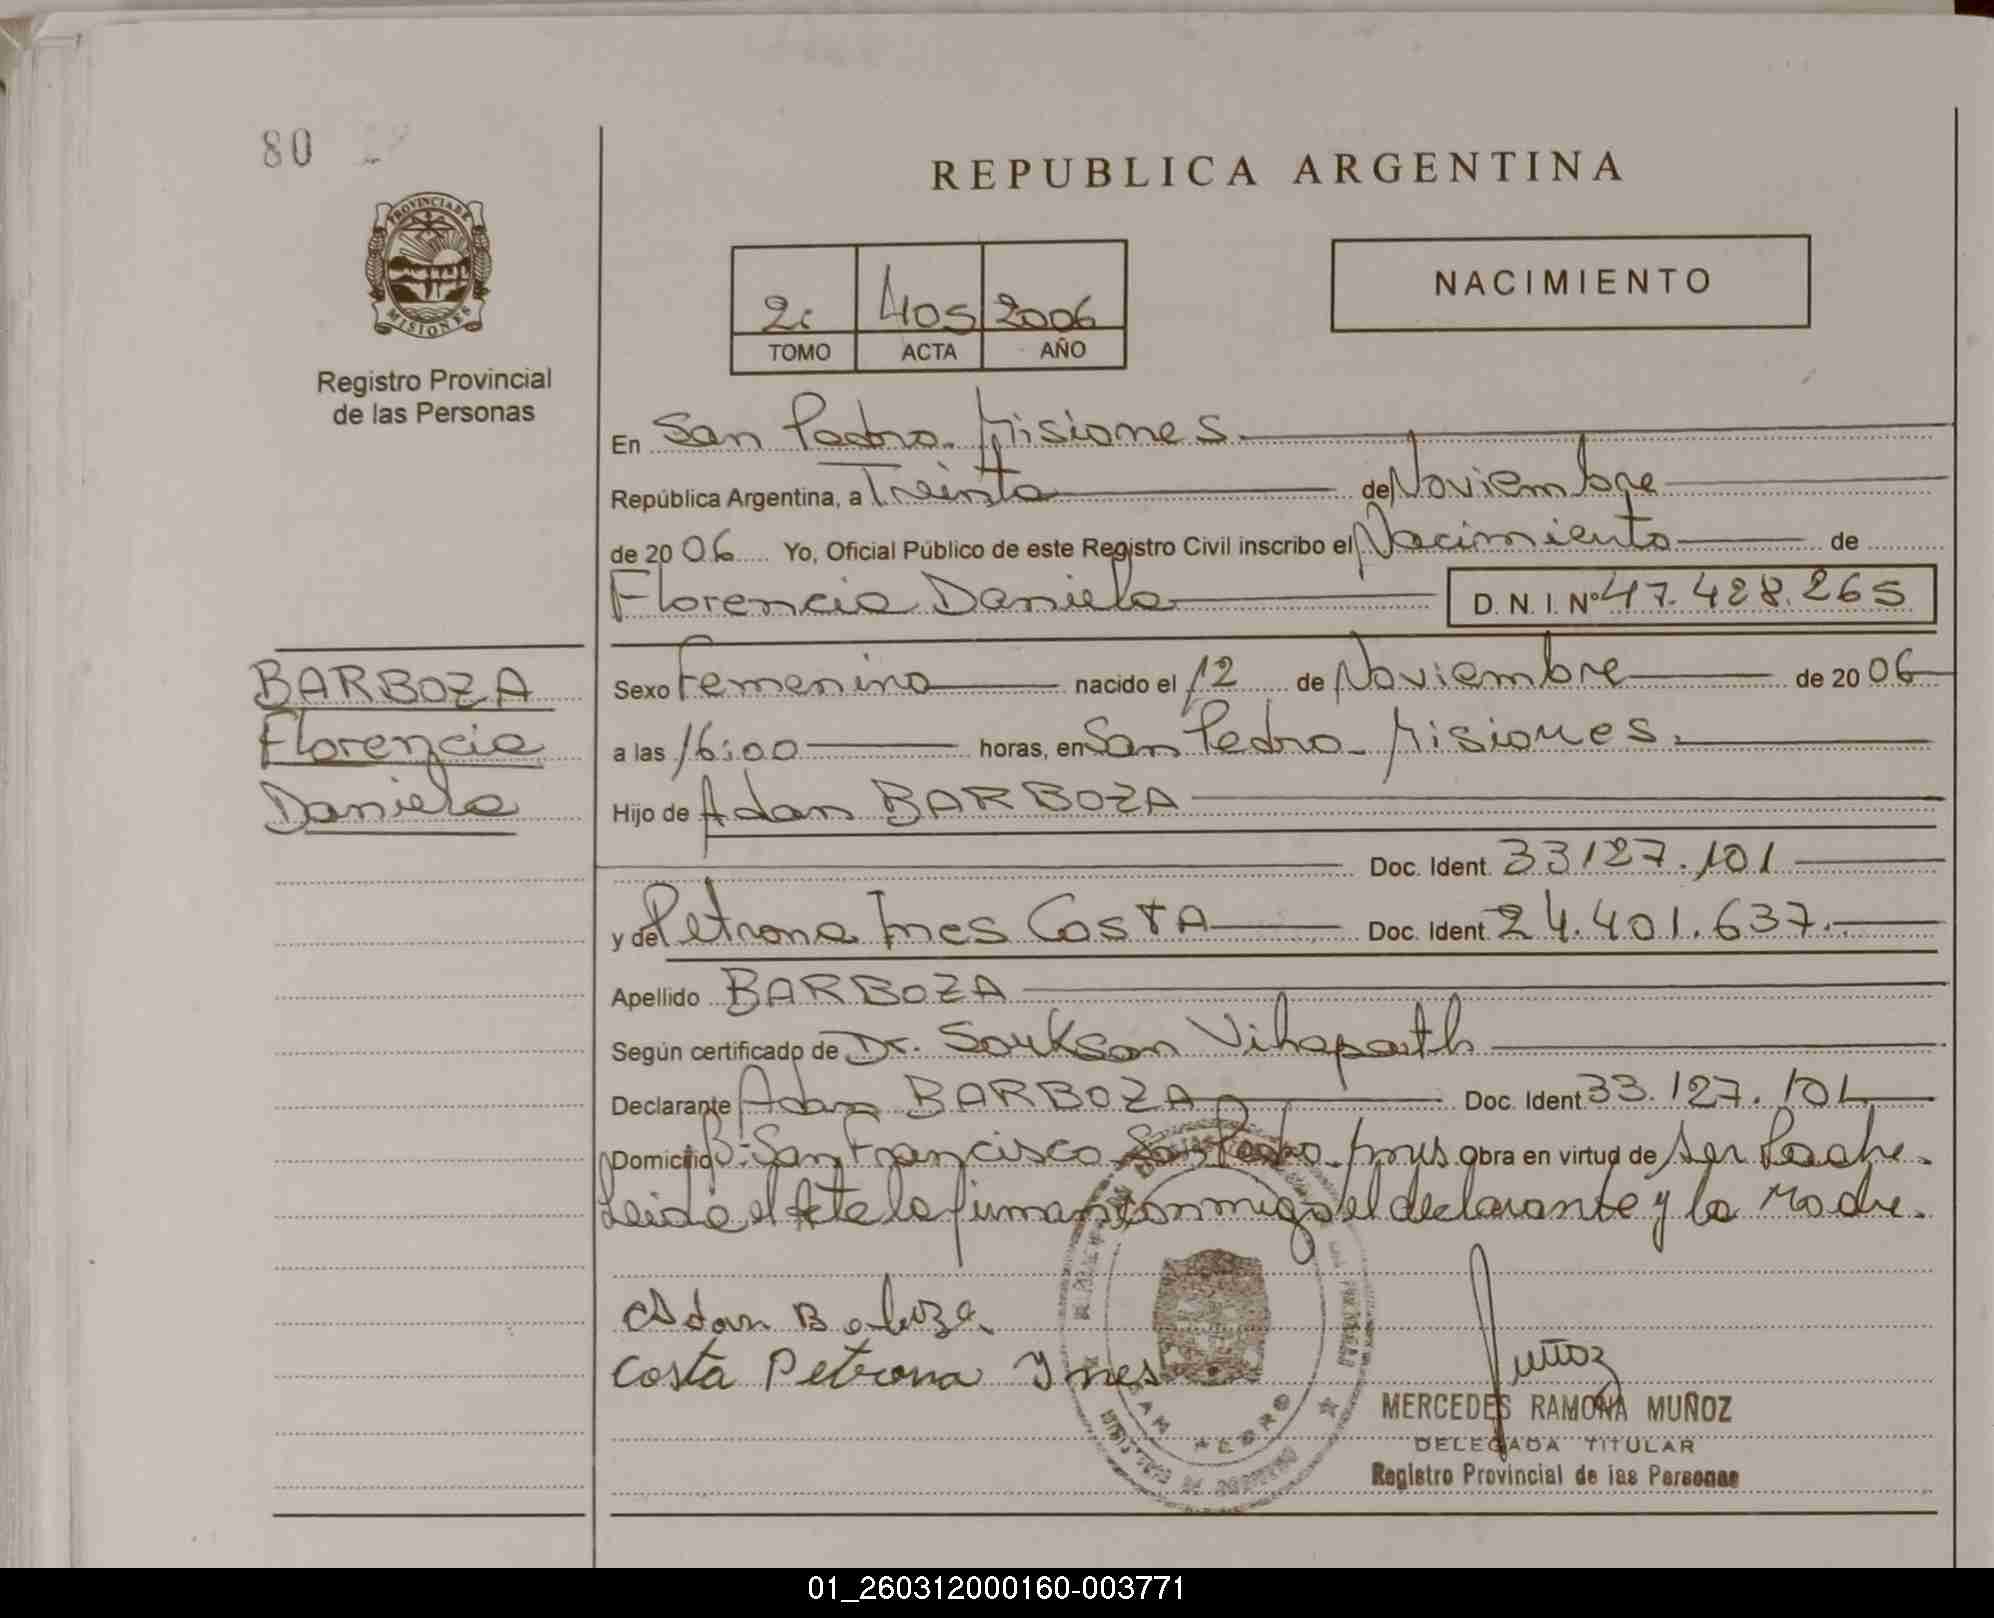 80
REPUBLICA ARGENTINA
PROVINCIA DE
MISIONES
Registro Provincial
de las Personas
2: 405 2006
TOMO ACTA AÑO
NACIMIENTO
En San Pedro. Misiones.
República Argentina, a Treinta de Noviembre
de 2006 Yo, Oficial Público de este Registro Civil inscribo el Nacimiento de
Florencia Daniela D. N. I. Nº 47.428.265
BARBOZA
Florencia
Daniela
Sexo Femenino nacido el 12 de Noviembre de 2006
a las 16:00 horas, en San Pedro. Misiones.
Hijo de Adan BARBOZA
Doc. Ident. 33127.101
y de Petrona Ines CosTA Doc. Ident. 24.401.637.
Apellido BARBOZA
Según certificado de Dr. Souksan Vihapath
Declarante Adan BARBOZA Doc. Ident. 33.127.101
Domicilio B: San Francisco San Pedro. Mnes obra en virtud de ser Padre.
Leida el Acta la firman conmigo el declarante y la Madre.
Adan Baboza
Costa Petrona Ynes
SAN PEDRO
Muñoz
MERCEDES RAMONA MUÑOZ
DELEGADA TITULAR
Registro Provincial de las Personas
01_260312000160-003771